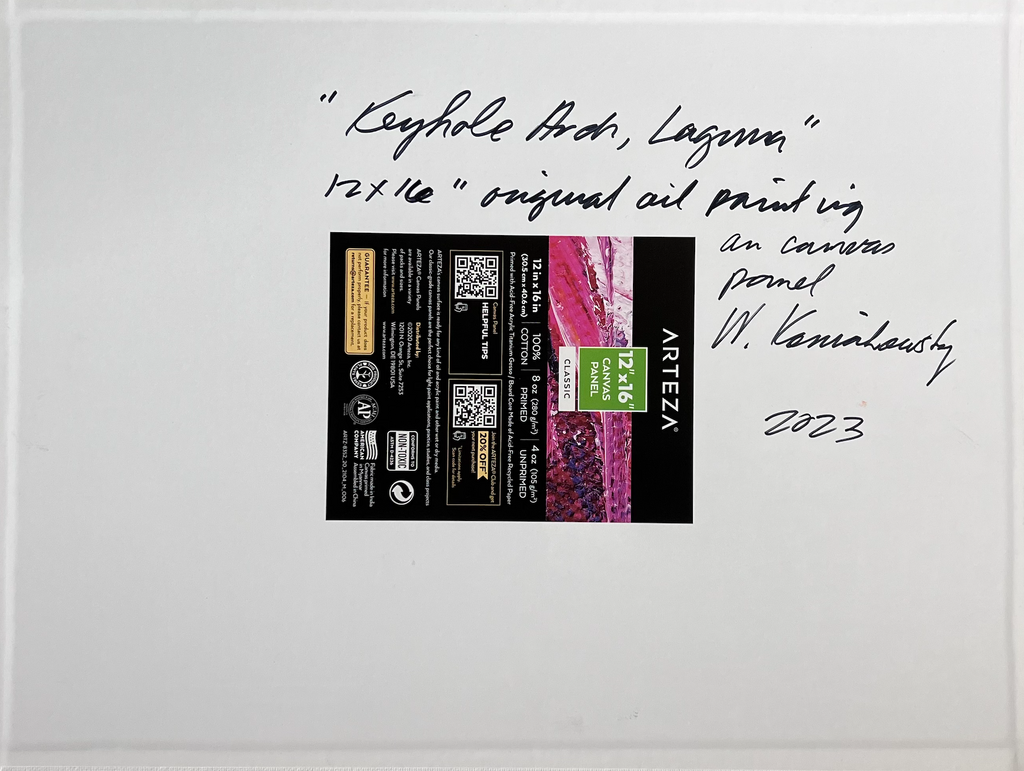 "Keyhole Arch, Laguna"
12 x 16" original oil painting
on canvas
panel
W. Koniakowsky
2023
ARTEZA®
12"x16"
CANVAS
PANEL
CLASSIC
12 in x 16 in
(30.5 cm x 40.6 cm)
100%
COTTON
8 oz (280 g/m²)
PRIMED
4 oz (105 g/m²)
UNPRIMED
Primed with Acid-Free Acrylic Titanium Gesso / Board Core Made of Acid-Free Recycled Paper
Canvas Panel
HELPFUL TIPS
Join the ARTEZA® Club and get
20% OFF
your next purchase!
ARTEZA's canvas surface is ready for any kind of oil and acrylic paint and other wet or dry media.
Our classic-grade canvas panels are the perfect choice for light paint applications, practice, studies, and class projects
ARTEZA® Canvas Panels
are available in a variety
of packs and sizes.
Please visit www.arteza.com
for more information
Distributed by:
©2020 Arteza, Inc.
1201 N. Orange St., Suite 7253
Wilmington, DE 19801 USA
www.arteza.com
CONFORMS TO
NON-TOXIC
ASTM D-4236
GUARANTEE — If your product does
not perform properly, please contact us at
returns@arteza.com for a replacement.
AP
AMERICAN
COMPANY
Fabric made in India
Canvas primed
in Myanmar
Assembled in China